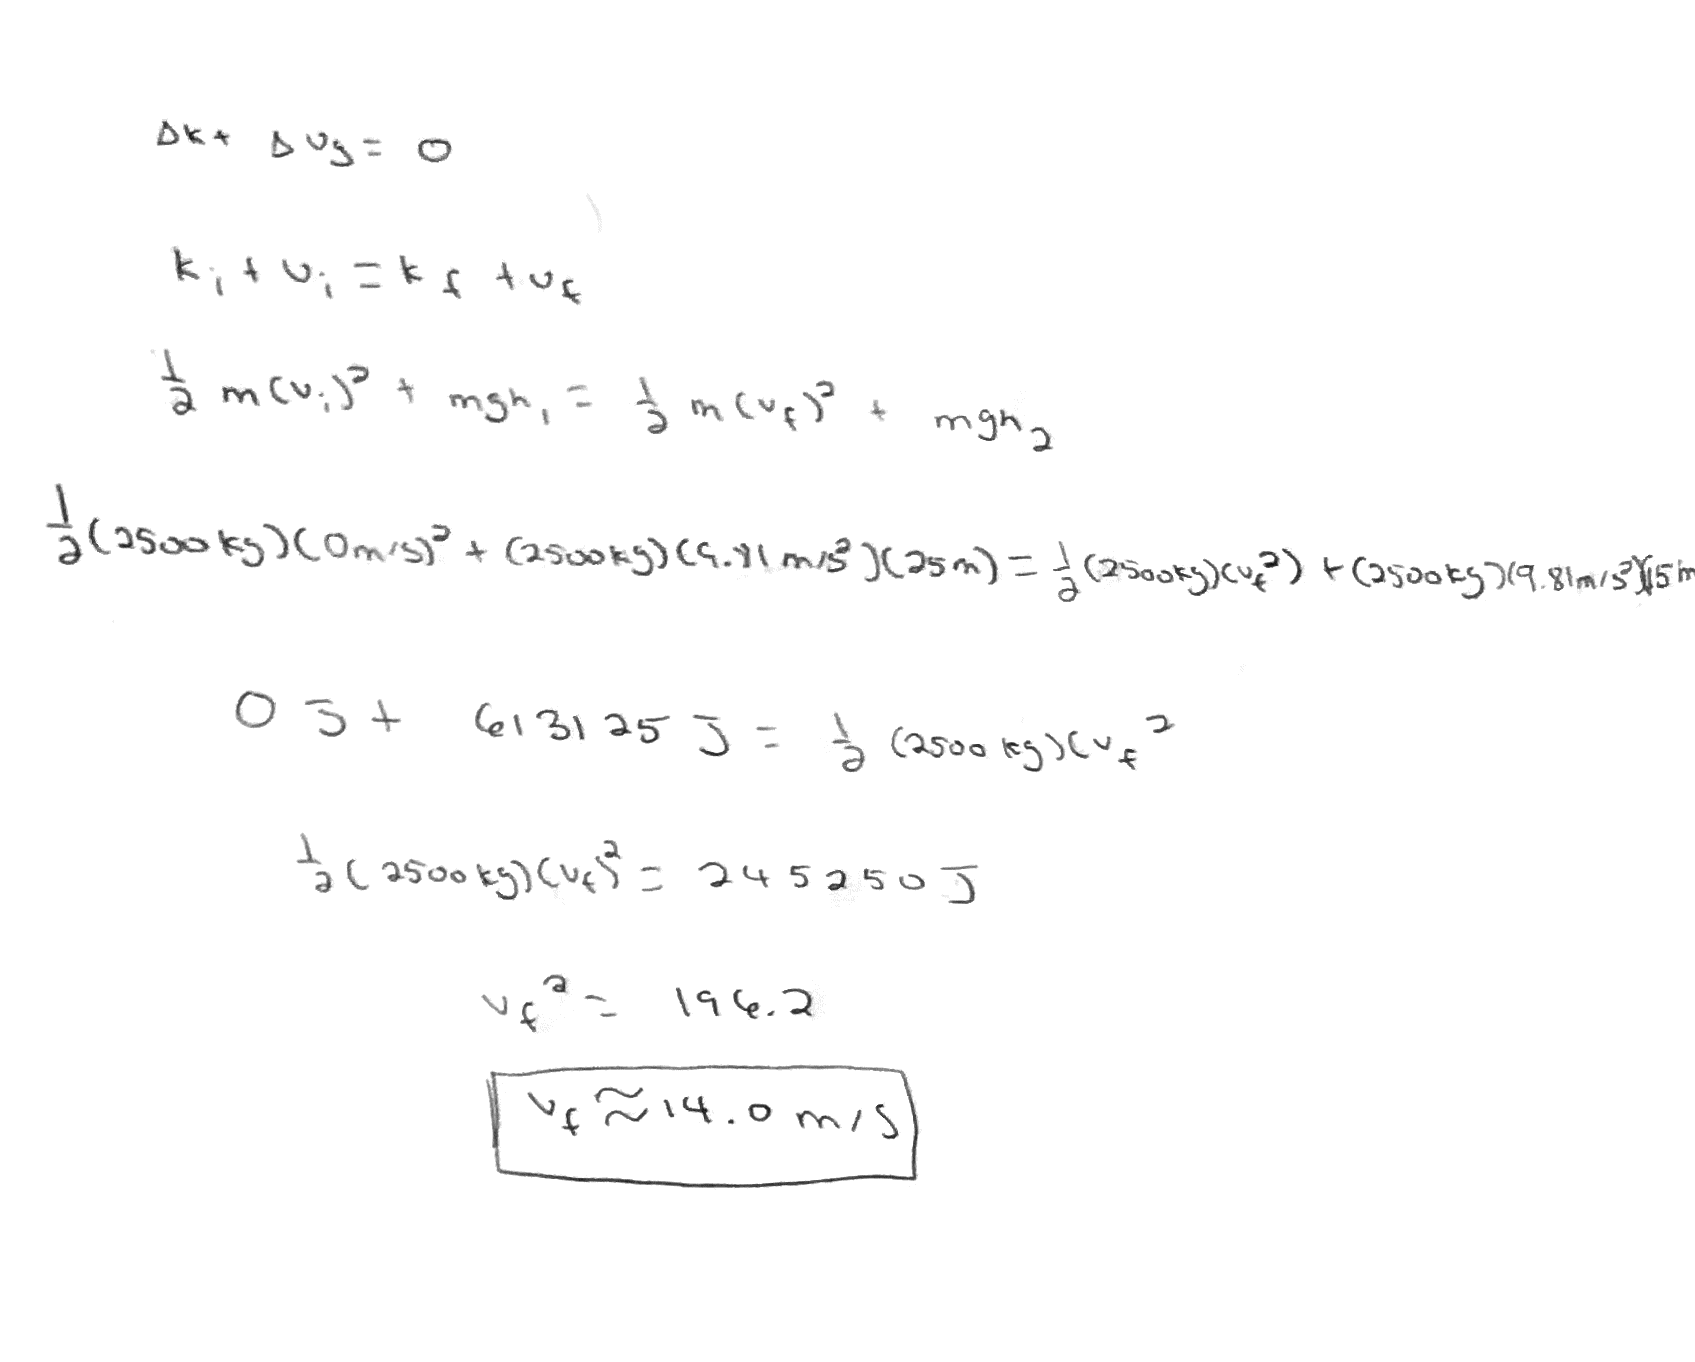 Δk + ΔUg = 0
k_i + U_i = k_f + U_f
1/2 m(v_i)² + mgh_1 = 1/2 m(v_f)² + mgh_2
1/2(2500kg)(0m/s)² + (2500kg)(9.81m/s²)(25m) = 1/2(2500kg)(v_f²) + (2500kg)(9.81m/s²)(15m
0 J + 613125 J = 1/2 (2500 kg)(v_f²
1/2(2500kg)(v_f)² = 245250J
v_f² = 196.2
v_f ≈ 14.0 m/s